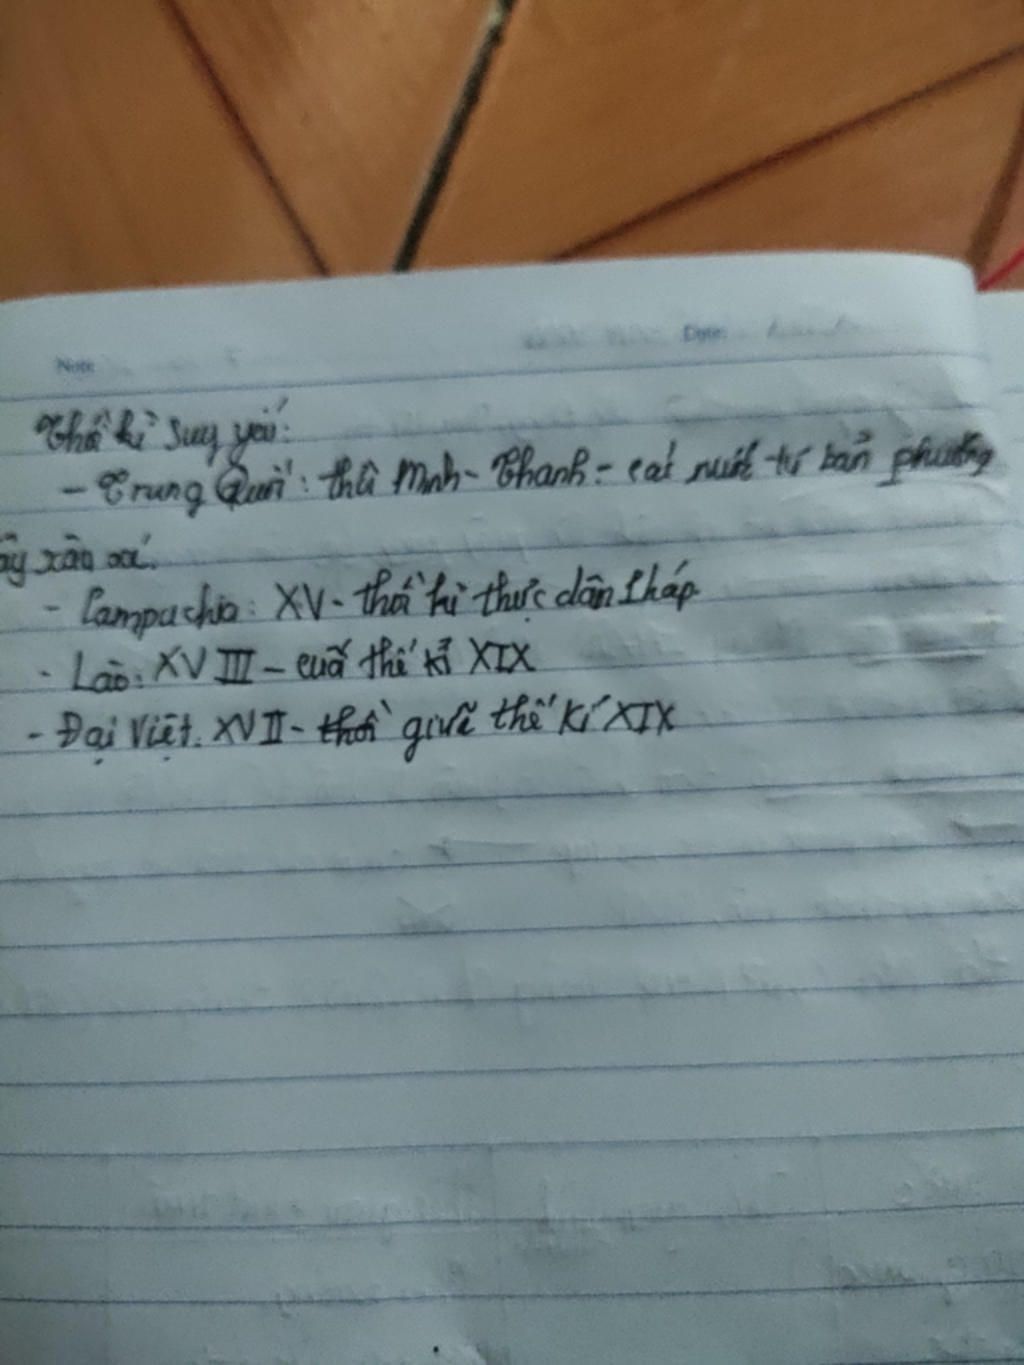 Note Date:
Thời kì suy yếu:
- Trung Quốc: thời Minh - Thanh - các nước tư bản phương
ây xâu xé.
- Campuchia: XV - thời kì thực dân Pháp
- Lào: XVIII - cuối thế kỉ XIX
- Đại Việt: XVII - thời giữa thế kỉ XIX